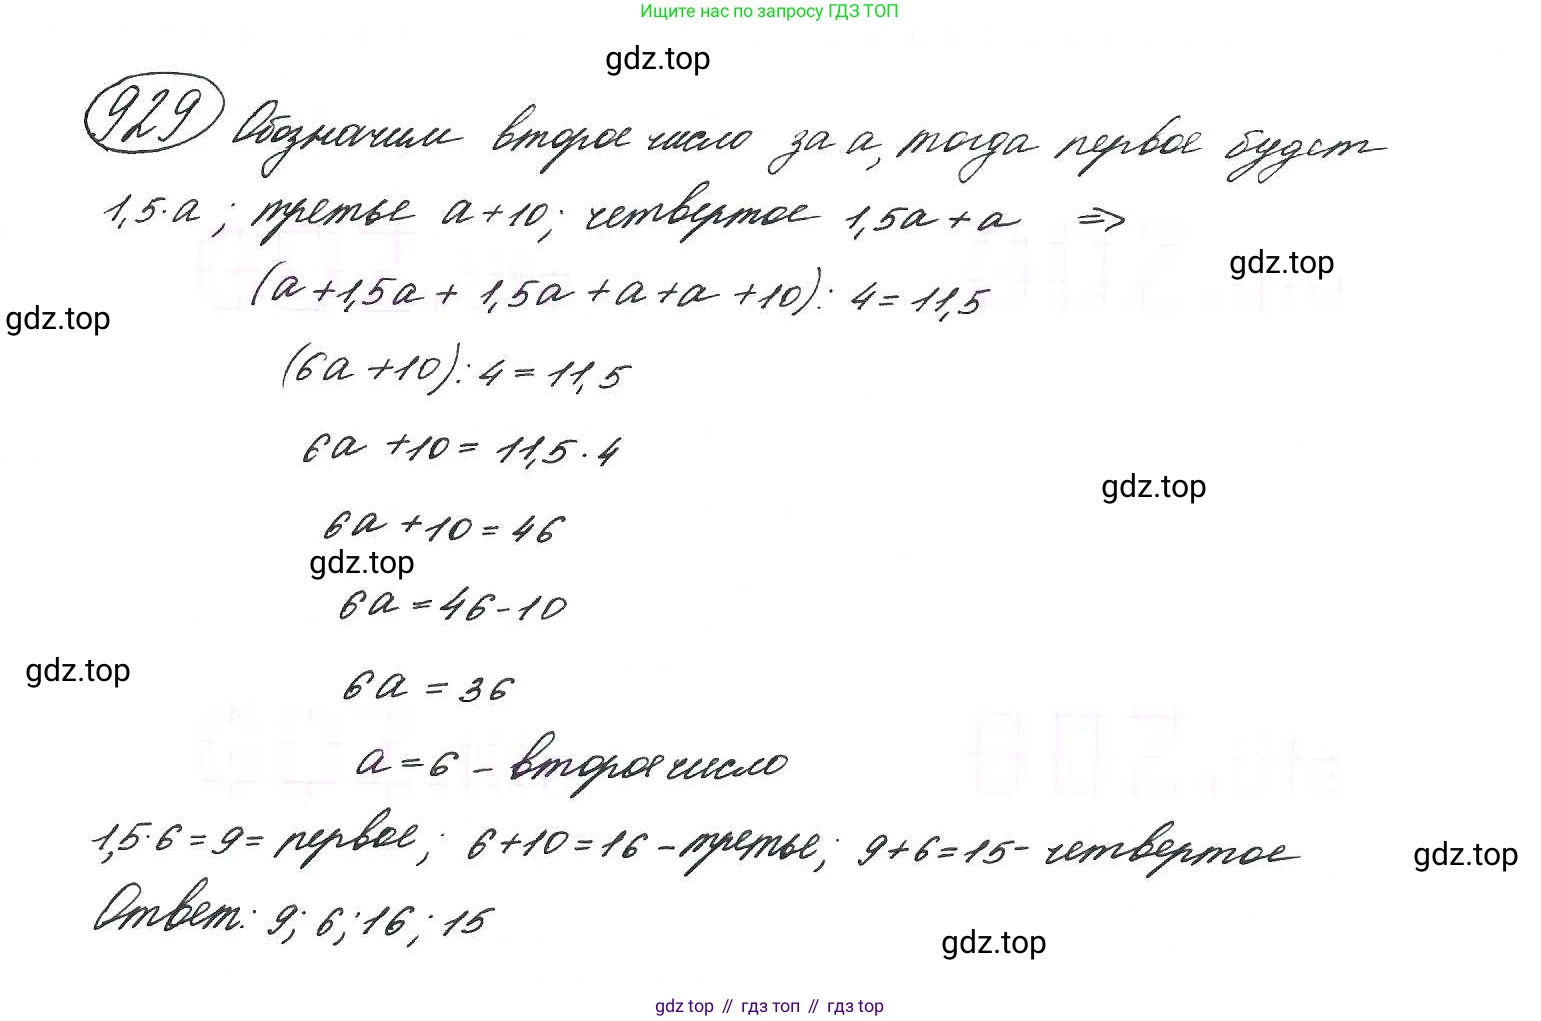 Ищите нас по запросу ГДЗ ТОП
gdz.top
929 Обозначим второе число за а, тогда первое будет
1,5·а; третье а+10; четвертое 1,5а+а =>
(а+1,5а+1,5а+а+а+10):4=11,5
gdz.top
gdz.top
(6а+10):4=11,5
6а+10=11,5·4
gdz.top
6а+10=46
gdz.top
6а=46-10
gdz.top
6а=36
а=6 - второе число
1,5·6=9= первое; 6+10=16-третье; 9+6=15- четвертое
gdz.top
Ответ: 9; 6; 16; 15
gdz.top
gdz.top // гдз топ // гдз top